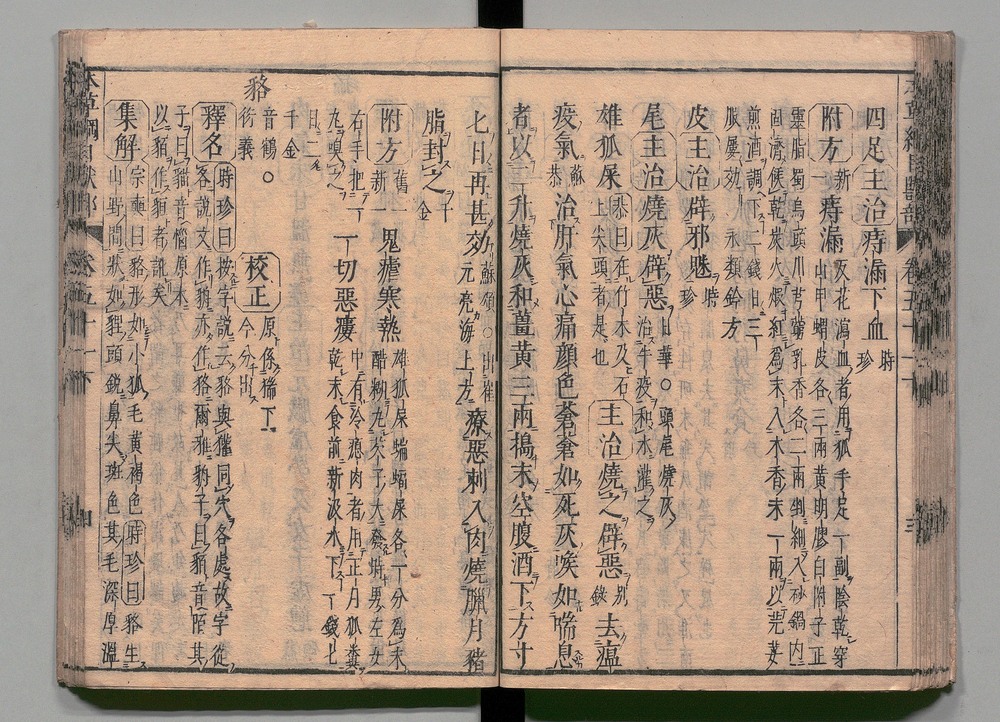 四足主治痔漏下血時珍
附方新一痔漏反花瀉血者用狐手足一副陰乾穿
山甲蝟皮各三兩黃明膠白附子五
靈脂蜀烏頭川芎藭乳香各二兩剉細入砂鍋內
固濟候乾炭火煅紅爲末入木香末一兩以芫荽
煎酒調下二錢日三
服屢効永類鈐方
皮主治辟邪魅時珍
尾主治燒灰辟惡日華○頭尾燒灰
治牛疫和水灌之
雄狐屎恭曰在竹木及石
上尖頭者是也主治燒之辟惡別錄去瘟
疫氣蘇恭治肝氣心痛顔色蒼蒼如死灰喉如喘息
者以二升燒灰和薑黃三兩搗末空腹酒下方寸
七日再甚効蘇頌○出崔
元亮海上方療惡刺入肉燒臘月豬
脂封之千金
附方舊一
新二鬼瘧寒熱雄狐屎蝙蝠屎各一分爲末
醋糊丸芡子大發時男左女
右手把一
丸嗅之一切惡瘻中有冷瘜肉者用正月狐糞
乾末食前新汲水下一錢匕
日二千金
貉音鶴○
衍義校正原係猯下
今分出
釋名時珍曰按字說云貉與獾同穴各處故字從
各說文作貈亦作貉爾雅貈子曰貆音陌其
子曰貆音惱原本
以貊作貈者訛矣
集解宗奭曰貉形如小狐毛黃褐色時珍曰貉生
山野間狀如貍頭銳鼻尖斑色其毛深厚溫